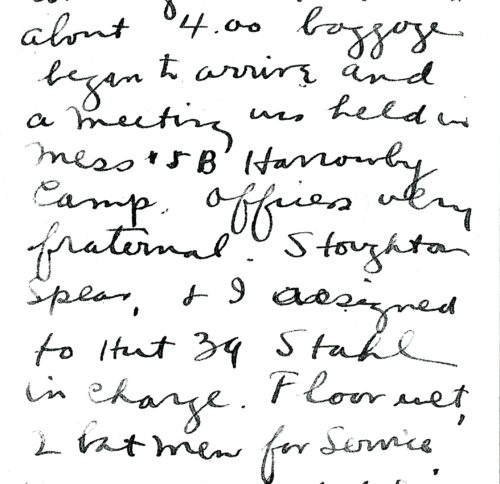 about 4.00 baggage
began to arrive and
a meeting was held in
Mess 5B Harrowby
Camp. Officers very
fraternal. Stoughton
Spear, & I assigned
to Hut 39 Stahl
in charge. Floor wet,
2 bat men for service.